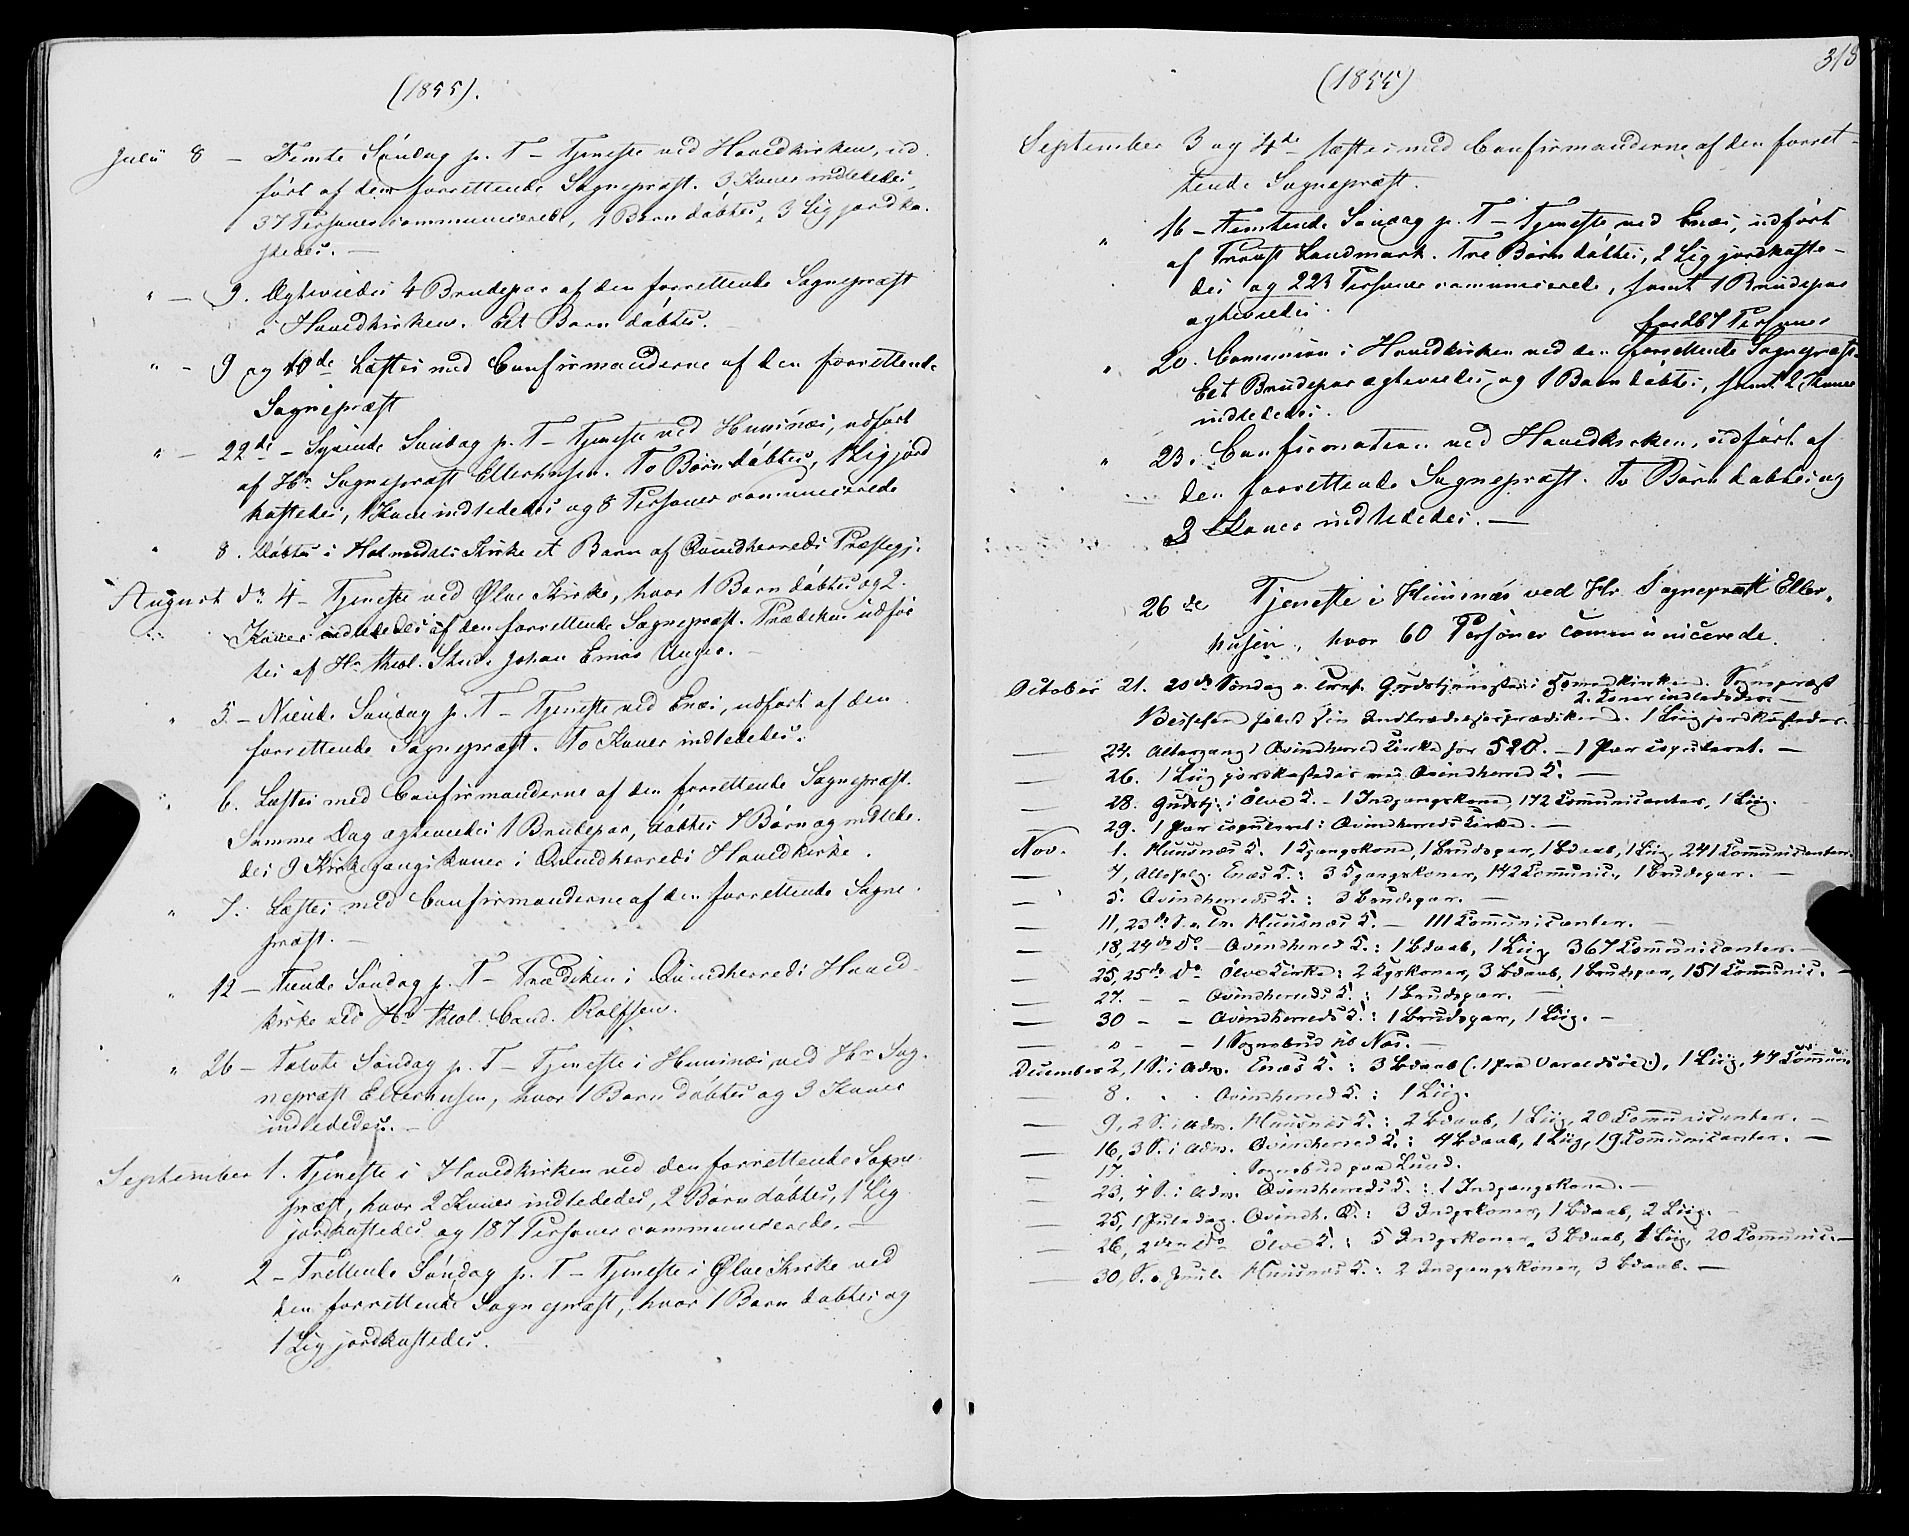 (1855).
Julii 8 – Femte Søndag p. T – Tjeneste ved Hovedkirken, ud-
ført af den forrettende Sognepræst. 3 Koner indlededes,
37 Personer communicerede, 1 Barn døbtes, 3 Lig jordka-
stedes. –
" – 9. Ægteviedes 4 Brudepar af den forrettende Sognepræst
i Hovedkirken. Eet Barn døbtes.
" – 9 og 10de Læstes med Confirmanderne af den forrettende
Sognepræst
" – 22de – Syvende Søndag p. T – Tjeneste ved Huusnæs, udført
af Hr. Sognepræst Ellerhusen. To Børn døbtes, 1 Lig jord
kastedes, 1 Kone indlededes og 8 Personer communicerede
" 8. Døbtes i Holmedals Kirke et Barn af Qvindherreds Præstegj.
August d. 4 – Tjeneste ved Ølve Kirke, hvor 1 Barn døbtes og 2
Koner indlededes af den forrettende Sognepræst. Prædiken udfør
tes af Hr. theol. Stud. Johan Enas Unger. –
" 5 – Niende Søndag p. T – Tjeneste ved Enæs, udført af den
forrettende Sognepræst. To Koner indlededes.
" 6. Læstes med Confirmanderne af den forrettende Sognepræst.
Samme Dag ægteviedes 1 Brudepar, døbtes 4 Børn og indlede-
des 9 Kirkegangskoner i Qvindherreds Hovedkirke.
" 7. Læstes med Confirmanderne af den forrettende Sogne-
præst. –
" 12 – Tiende Søndag p. T – Prædiken i Qvindherreds Hoved-
kirke ved Hr. theol. Cand. Rolfsen.
" 26 – Tolvte Søndag p. T – Tjeneste i Huusnæs, ved Hr Sog-
nepræst Ellerhusen, hvor 1 Barn døbtes og 3 Koner
indlededes. –
September 1. Tjeneste i Hovedkirken ved den forrettende Sogne-
præst, hvor 2 Koner indlededes, 2 Børn døbtes, 1 Lig
jordkastedes og 187 Personer communicerede. –
" 2 – Trettende Søndag p. T – Tjeneste i Ølve Kirke ved
den forrettende Sognepræst, hvor 1 Barn døbtes og
1 Lig jordkastedes. –
318
(1855)
September 3 og 4de læstes med Confirmanderne af den forret-
tende Sognepræst.
" 16 – Femtende Søndag p. T – Tjeneste ved Enæs, udført
af Provst Landmark. Tre Børn døbtes, 2 Lig jordkaste-
des og 223 Personer communicerede, samt 1 Brudepar
ægteviedes.
for 267 Personer
" 20. Communion i Hovedkirken ved den forrettende Sognepræst.
Eet Brudepar ægteviedes og 1 Barn døbtes, samt 2 Koner
indlededes.
" 23. Confirmation ved Hovedkirken, udført af
den forrettende Sognepræst. To Børn døbtes og
3 Koner indlededes. –
26de Tjeneste i Huusnæs ved Hr. Sognepræst Eller-
husen, hvor 60 Personer communicerede.
October 21. 20de Søndag e. Trinf. Gudstjeneste i Hovedkirken. Sognepræst
2 Koner indlededes. –
Bessesen holdt sin Indtrædelsesprædiken. 1 Liig jordkastedes.
– 24. Altergang i Qvindherred Kirke for 520. – 1 Par copuleret. –
– 26. 1 Liig jordkastedes ved Qvindherred K. –
– 28. Gudstj. i Ölve K. – 1 Indgangskone, 172 Communicanter, 1 Liig.
– 29. 1 Par copuleret i Qvindherreds Kirke. –
Nov. 1. Huusnæs K. 1 Kgangskone, 1 Brudepar, 1 Bdaab, 1 Liig, 241 Communicanter.
– 4, Allehelg. Enæs K.: 3 Kgangskoner, 142 Communic., 1 Brudepar. –
– 5. Qvindherreds K.: 3 Brudepar. –
– 11, 23de S. e. Tr. Huusnæs K. – 111 Communicanter. –
– 18, 24de Do – Qvindherred K.: 1 Bdaab, 1 Liig, 367 Communicanter. –
– 25, 25de Do Ölve Kirke: 2 Kgskoner, 3 Bdaab, 1 Brudepar, 151 Communic. –
– 27. – – Qvindherreds K.: 1 Brudepar. –
– 30 – – Qvindherreds K.: 1 Brudepar, 1 Liig. –
– " – – 1 Sognebud til Næs. –
December 2, 1 S. i Adv. Enæs K.: 3 Bdaab (: 1 fra Varaldsöe:), 1 Liig, 44 Commun
– 8. " . Qvindherred K.: 1 Liig.
– 9, 2 S. i Adv. Huusnæs K.: 2 Bdaab, 1 Liig, 20 Communicanter. –
– 16, 3 S. i Adv. Qvindherred K.: 4 Bdaab, 1 Liig, 19 Communicanter. –
– 17. . . Sognebud paa Lund.
– 23, 4 S. i Adv. Qvindherreds K.: 1 Indgangskone. –
– 25, 1 Juledag. Qvindh. K.: 3 Indgskoner, 1 Bdaab, 2 Liig. –
– 26, 2den Do Ölve K.: 5 Indgskoner, 3 Bdaab, 1 Liig, 20 Communic. –
– 30, S. e. Juul. Huusnæs K.: 2 Indgangskoner, 3 Bdaab. –